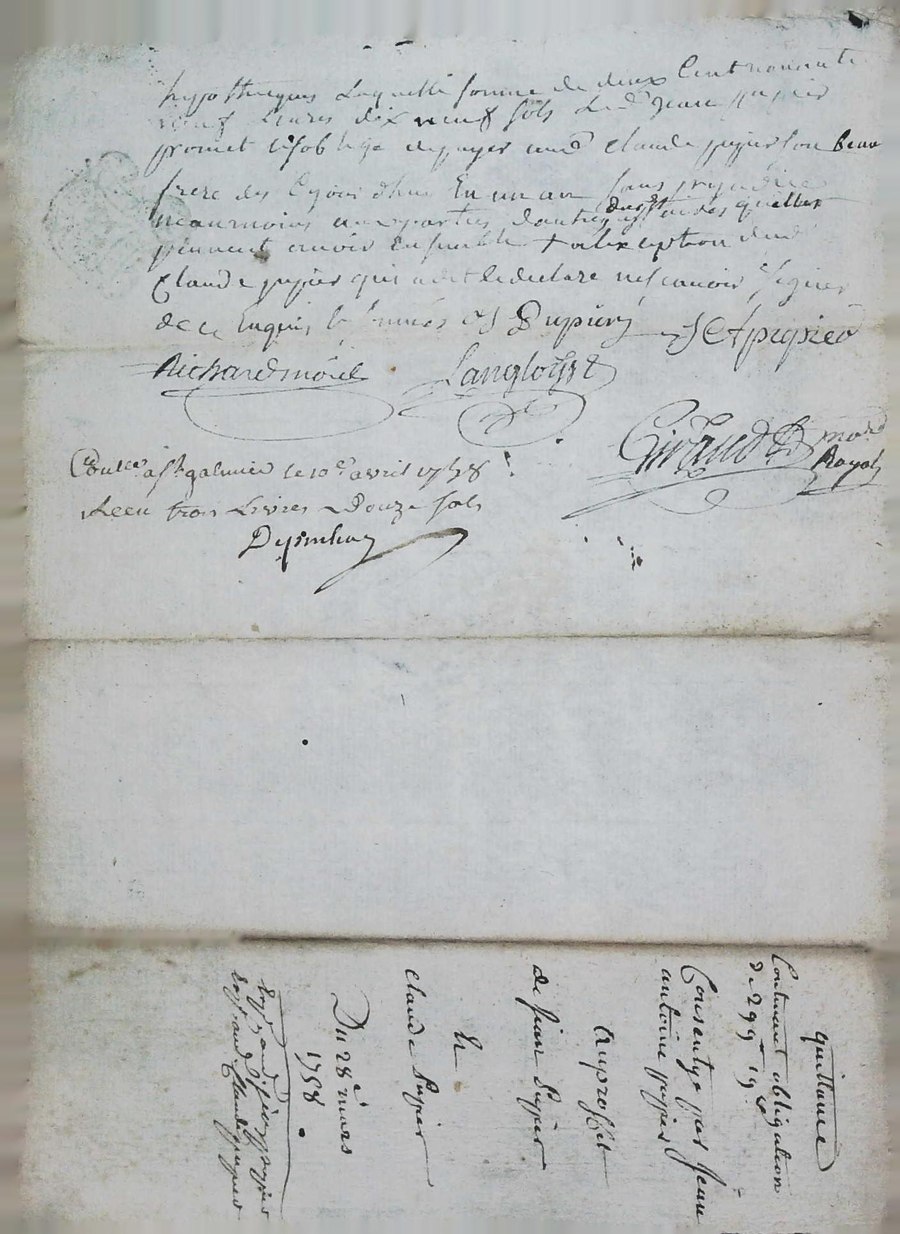 hypotheques Laquelle somme de deux Cent nonante
neuf Livres dix neuf sols Led. Jean pupier
promet & soblige de payer aud. Claude pupier son beau
frere des Ce jour dhui En un an sans prejudice
neaumoins aux parties dautres dus & suides quelles
peuvent avoir Ensemble a lexception dud.
Claude pupier qui a dit & declare ne scavoir signer
de ce Enquis & sommés J Pupier J A pupier
Richard moriel Langlois
Giraud No.re Royal
Con.lle a St galmier le 10e avril 1758
Receu trois Livres Douze sols
quittance
Contenant obligation
de 299 l 19 s
Consentye par Jean
antoine pupier
Au proffit
de Jean Pupier
&
Claude Pupier
Du 28e mars
1758